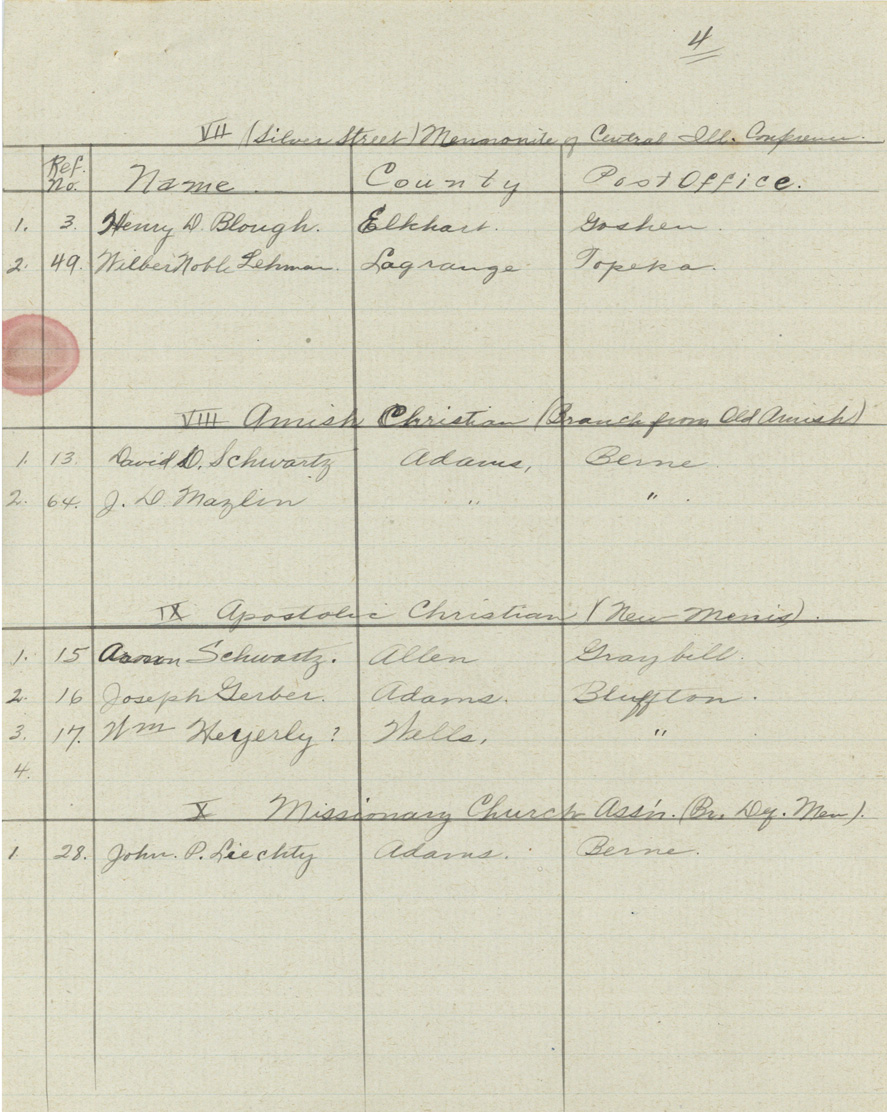 4
VII (Silver Street) Mennonite of Central Ill. Conference.
Ref. No. Name. County Post Office.
1. 3. Henry D. Blough. Elkhart. Goshen.
2. 49. Wilber Noble Lehman. Lagrange Topeka.
VIII Amish Christian (Branch from Old Amish)
1. 13. David D. Schwartz Adams, Berne
2. 64. J. D. Mazlin " " .
IX Apostolic Christian (New Menis).
1. 15 Schwartz. Allen Graybill.
2. 16 Joseph Gerber. Adams. Bluffton.
3. 17. Wm Heyerly? Wells, "
4.
X Missionary Church Ass'n. (Br. Df. Men).
1. 28. John. P. Liechty Adams. Berne.